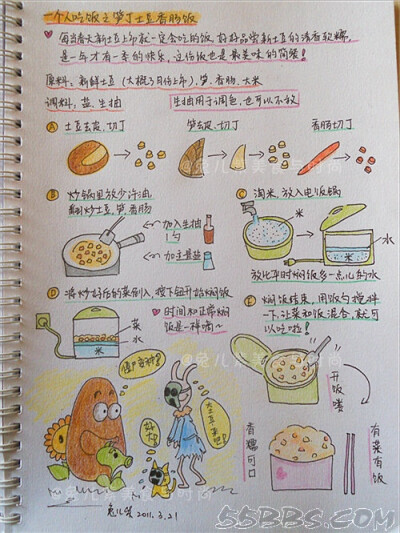 一个人吃饭之笋丁土豆香肠饭
每当春天新土豆上市就一定会吃的饭 好好品尝新土豆的清香软糯,
是一年才有一季的快乐,这份饭也是最美味的简餐!
原料:新鲜土豆(大概3月份上市),笋,香肠,大米
调料:盐,生抽
生抽用于调色,也可以不放
A 土豆去皮,切丁
笋去皮,切丁
香肠切丁
B 炒锅里放少许油
翻炒土豆,笋,香肠
加入生抽
1勺
加主量盐
C 淘米,放入电饭锅
米
米
水
放比平时焖饭多一点儿的水
D 将炒好后的菜倒入,按下钮开始焖饭
菜
水
米
时间和正常焖
饭是一样嘀~
E 焖饭结束,用饭勺搅拌
一下,让菜和饭混合,就可
以吃啦!
开饭喽
香糯可口
有菜有饭
兔儿笑 2011.3.21
@兔儿笑美食与时尚
55BBS.COM